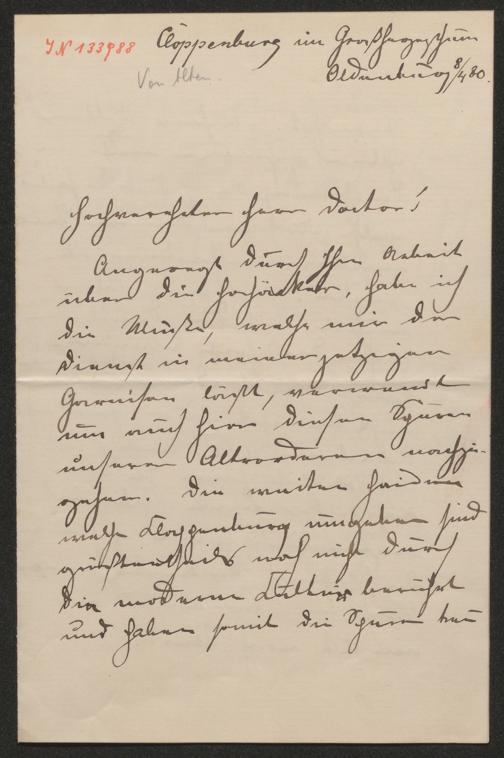 IN 133988
Cloppenburg im Großherzogthum
Oldenburg 8/4 80.
Von Alten.
Hochverehrter Herr Doctor!
Angeregt durch Ihre Arbeit
über die Hochäcker, habe ich
die Muße, welche mir der
Dienst in meiner jetzigen
Garnison läßt, verwandt
um auch hier diesen Spuren
unserer Altvorderen nachzu-
gehen. Die weiten Haiden
welche Cloppenburg umgeben sind
größtentheils noch nicht durch
die moderne Cultur berührt
und haben somit die Spuren treu